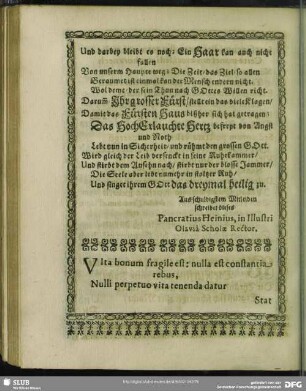 Und darbey bleibt es noch: Ein Haar kan auch nicht
fallen
Von unserm Haupte weg: Die Zeit/ das Ziel so allen
Beraumet ist einmal kan der Mensch endern nicht.
Wol deme/ der sein Thun nach GOttes Willen richt.
Darum Ihr grosser Fürst/ stellt ein das viele klagen/
Damit das Fürsten Haus bißher sich hat getragen:
Das HochErlauchte Hertz befreyt von Angst
und Noth
Lebt nun in Sicherheit/ und rühmt den grossen GOtt.
Wird gleich der Leib versenckt in seine Ruhekammer/
Und stirbt dem Ansehn nach/ stirbt nur der blosse Jammer/
Die Seele aber lebt
Und singet ihrem GOtt das dreymal heilig zu.
Aus schuldigstem Mitleiden
schreibet dieses
Pancratius Heinius, in Illustri
Olsviâ Scholæ Rector.
VIta bonum fragile est: nulla est constantia
rebus,
Nulli perpetuo vita tenenda datur
Stat
SLUB
Wir führen Wissen.
gefördert von der
Deutschen Forschungsgemeinschaft
DFG